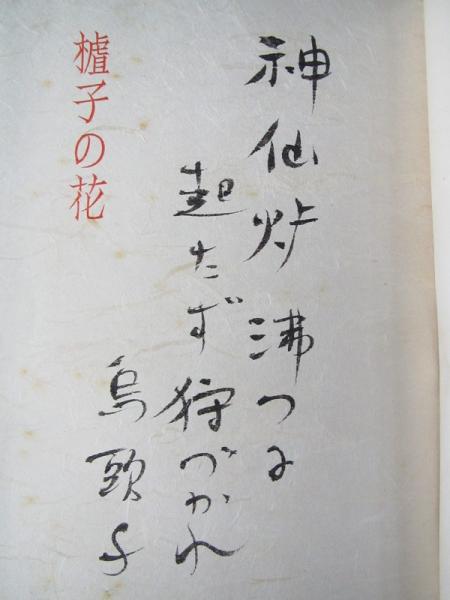 神仙炉沸つに
起たず狩づかれ
烏頭子
樝子の花